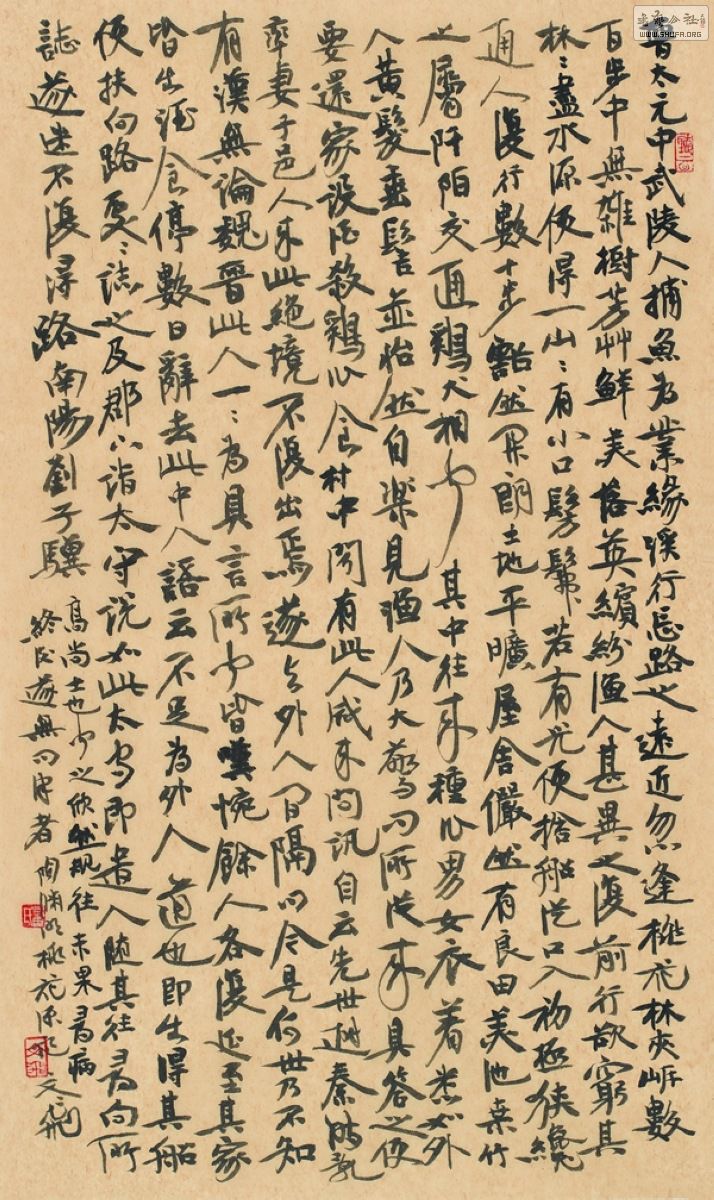 晉太元中武陵人捕魚為業緣溪行忘路之遠近忽逢桃花林夾岸數
百步中無雜樹芳艸鮮美落英繽紛漁人甚異之復前行欲窮其
林〻盡水源便得一山〻有小口髣髴若有光便捨船從口入初極狹纔
通人復行數十步豁然開朗土地平曠屋舍儼然有良田美池桑竹
之屬阡陌交通鷄犬相聞其中往來種作男女衣著悉如外
人黃髮垂髫並怡然自樂見漁人乃大驚問所從來具答之便
要還家設酒殺鷄作食村中聞有此人咸來問訊自云先世避秦時亂
率妻子邑人來此絕境不復出焉遂與外人間隔問今是何世乃不知
有漢無論魏晉此人一〻為具言所聞皆嘆惋餘人各復延至其家
皆出酒食停數日辭去此中人語云不足為外人道也即出得其船
便扶向路處〻誌之及郡下詣太守說如此太守即遣人隨其往尋向所
誌遂迷不復得路南陽劉子驥
高尚士也聞之欣然規往未果尋病
終後遂無問津者 陶淵明桃花源記 文飛
WWW.SHUFA.ORG